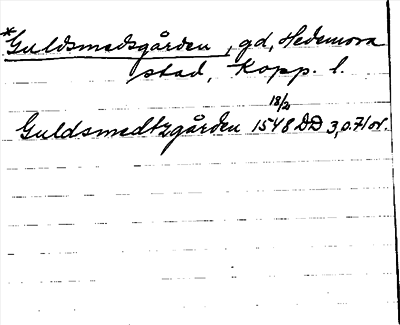 *Guldsmedsgården, gd, Hedemora
stad, Kopp. l.
18/2
Guldsmedtzgården 1548 DD 3, o.71 or.